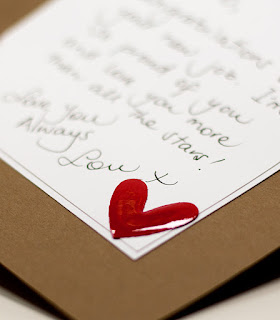 Congratulations
on your new job. I'm
so proud of you
and love you more
than all the stars!
Love You
Always
Lou x